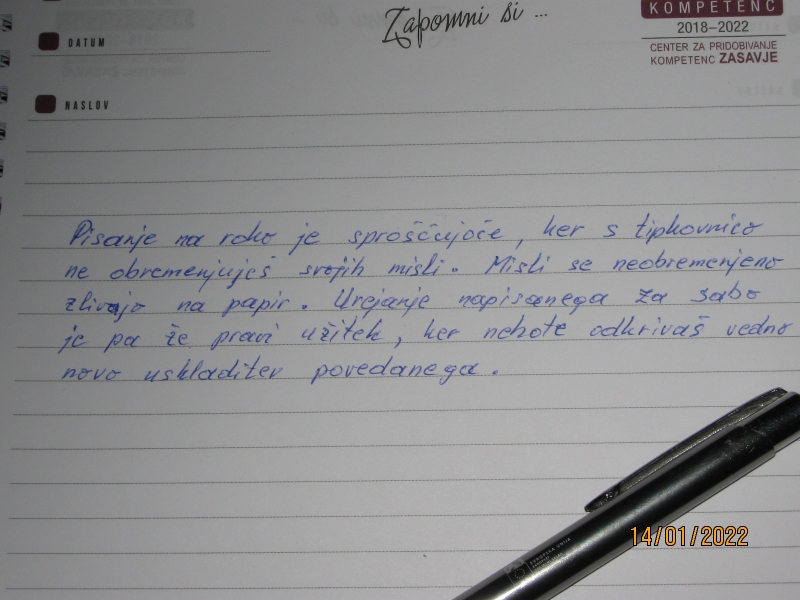 Zapomni si ...
KOMPETENC
2018–2022
CENTER ZA PRIDOBIVANJE
KOMPETENC ZASAVJE
DATUM
NASLOV
Pisanje na roko je sproščujoče, ker s tipkovnico
ne obremenjuješ svojih misli. Misli se neobremenjeno
zlivajo na papir. Urejanje napisanega za sabo
je pa že pravi užitek, ker nehote odkrivaš vedno
novo uskladitev povedanega.
EVROPSKA UNIJA
14/01/2022